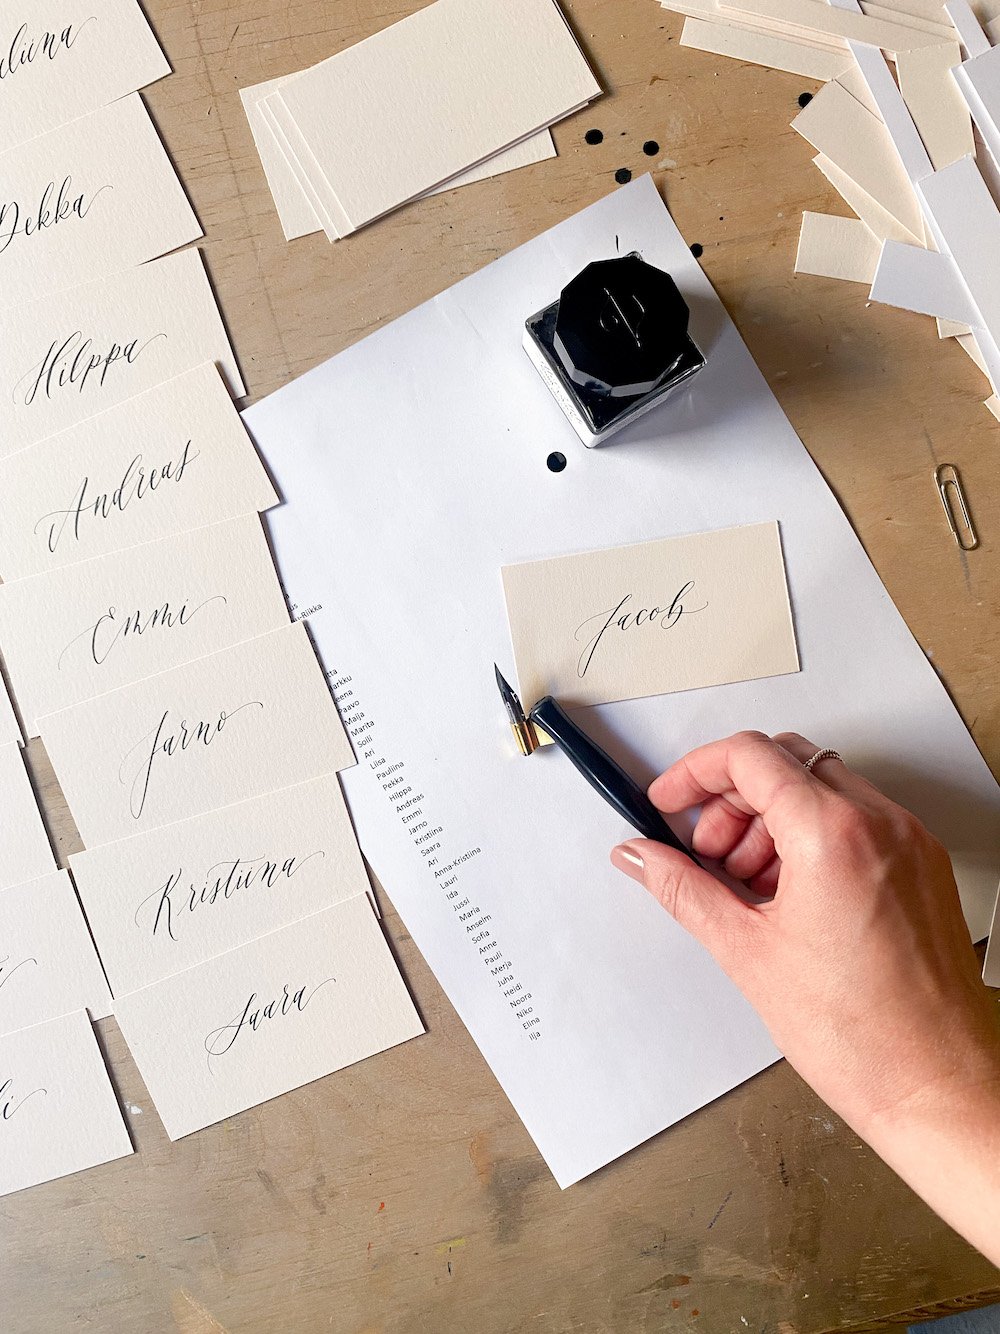 Dekka
Hilppa
Andreas
Emmi
Jarno
Kristiina
Saara
Jacob
Paavo
Maija
Marita
Soili
Ari
Liisa
Pauliina
Pekka
Hilppa
Andreas
Emmi
Jarno
Kristiina
Saara
Ari
Anna-Kristiina
Lauri
Ida
Jussi
Maria
Anselm
Sofia
Anne
Pauli
Merja
Juha
Heidi
Noora
Niko
Elina
Ilja